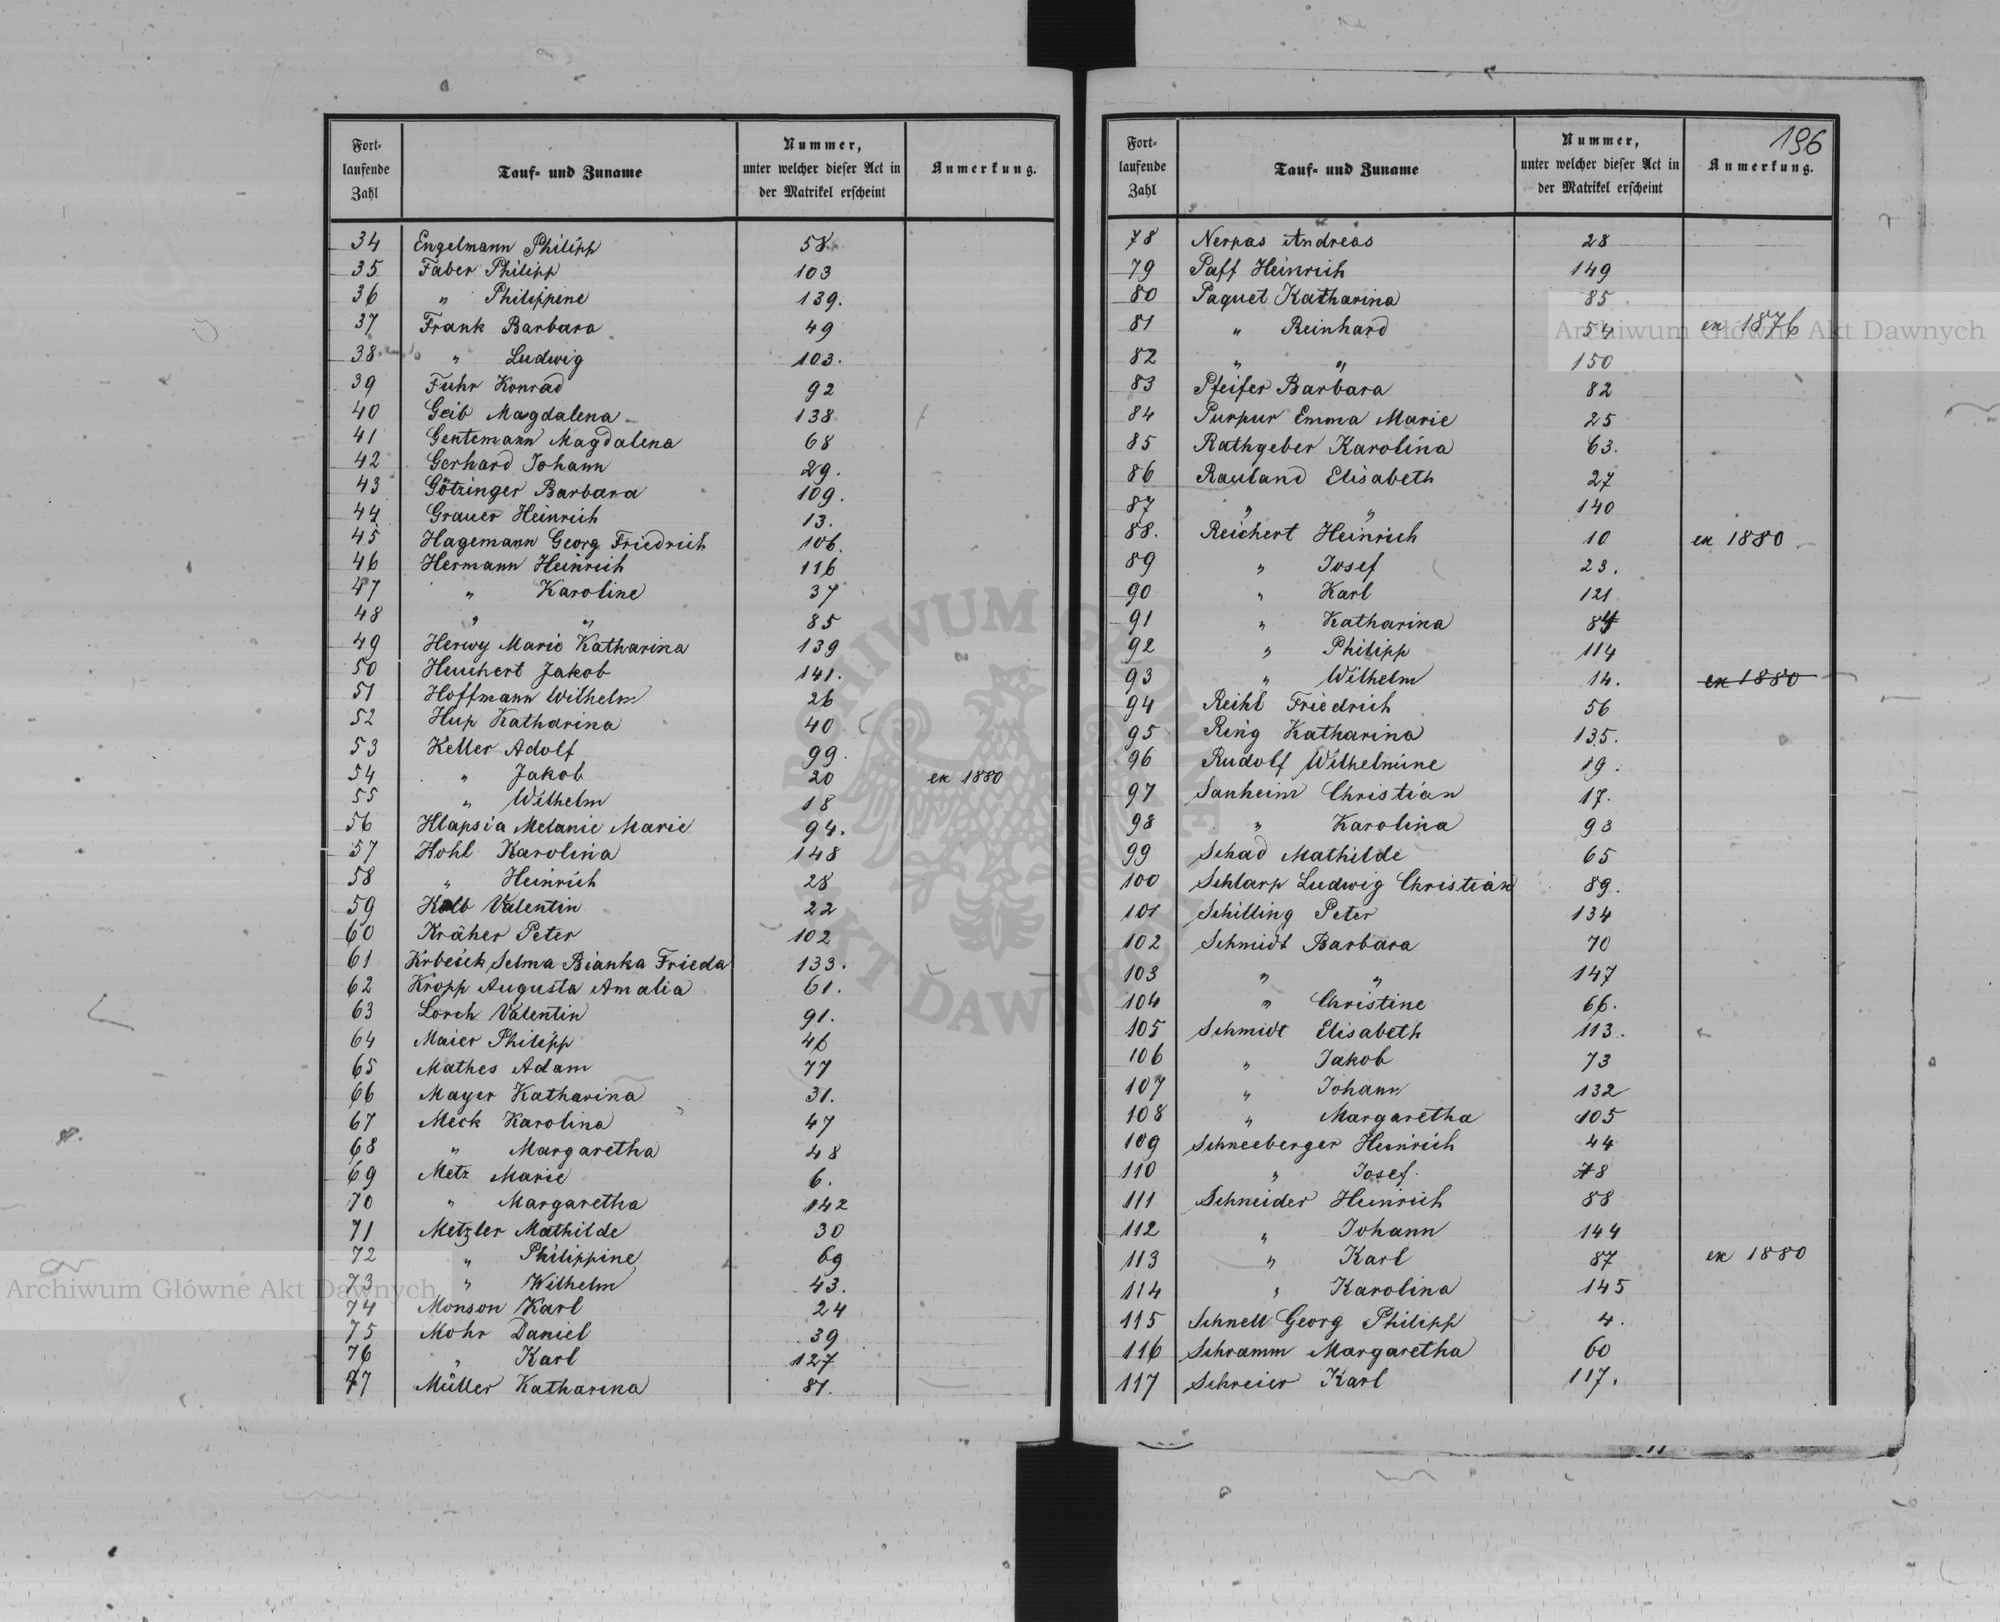 Fortlaufende Zahl | Tauf- und Zuname | Nummer, unter welcher dieser Act in der Matrikel erscheint | Anmerkung.
34 Engelmann Philipp 58
35 Faber Philipp 103
36 " Philippine 139.
37 Frank Barbara 49
38 " Ludwig 103.
39 Fuhr Konrad 92
40 Geib Magdalena 138
41 Gentemann Magdalena 68
42 Gerhard Johann 29.
43 Götzinger Barbara 109.
44 Grauer Heinrich 13.
45 Hagemann Georg Friedrich 106.
46 Hermann Heinrich 116
47 " Karoline 37
48 " " 85
49 Herwy Marie Katharina 139
50 Heuchert Jakob 141.
51 Hoffmann Wilhelm 26
52 Hup Katharina 40
53 Keller Adolf 99
54 " Jakob 20 ex 1880
55 " Wilhelm 18
56 Klapsia Melanie Marie 94.
57 Kohl Karolina 148
58 " Heinrich 28
59 Kolb Valentin 22
60 Kräher Peter 102
61 Krbeick Selma Bianka Frieda 133.
62 Kropp Augusta Amalia 61.
63 Lorch Valentin 91.
64 Maier Philipp 46
65 Mathes Adam 77
66 Mayer Katharina 31.
67 Meck Karolina 47
68 " Margaretha 48
69 Metz Marie 6.
70 " Margaretha 142
71 Metzler Mathilde 30
72 " Philippine 69
73 " Wilhelm 43.
74 Monson Karl 24
75 Mohr Daniel 39
76 " Karl 127
77 Müller Katharina 81.
196
Fortlaufende Zahl | Tauf- und Zuname | Nummer, unter welcher dieser Act in der Matrikel erscheint | Anmerkung.
78 Nerpas Andreas 28
79 Paff Heinrich 149
80 Paquet Katharina 85
81 " Reinhard 54 ex 1876
82 " " 150
83 Pfeifer Barbara 82
84 Purpur Emma Marie 25
85 Rathgeber Karolina 63.
86 Rauland Elisabeth 27
87 " " 140
88. Reichert Heinrich 10 ex 1880
89 " Josef 23.
90 " Karl 121
91 " Katharina 84
92 " Philipp 114
93 " Wilhelm 14. ex 1880
94 Reihl Friedrich 56
95 Ring Katharina 135.
96 Rudolf Wilhelmine 19.
97 Sanheim Christian 17.
98 " Karolina 93
99 Schad Mathilde 65
100 Schlarp Ludwig Christian 89.
101 Schilling Peter 134
102 Schmidt Barbara 70
103 " " 147
104 " Christine 66.
105 Schmidt Elisabeth 113.
106 " Jakob 73
107 " Johann 132
108 " Margaretha 105
109 Schneeberger Heinrich 44
110 " Josef. 78
111 Schneider Heinrich 88
112 " Johann 144
113 " Karl 87 ex 1880
114 " Karolina 145
115 Schnell Georg Philipp 4.
116 Schramm Margaretha 60
117 Schreier Karl 117.
Archiwum Główne Akt Dawnych
Archiwum Główne Akt Dawnych
ARCHIWUM GŁÓWNE AKT DAWNYCH